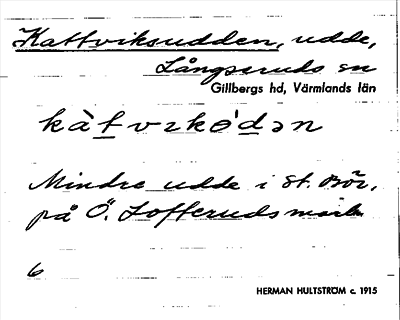 Kattviksudden, udde,
Långseruds sn
Gillbergs hd, Värmlands län
kàtvɪkòdən
Mindre udde i St. Bör,
på Ö. Lofferuds mark
6
HERMAN HULTSTRÖM c. 1915